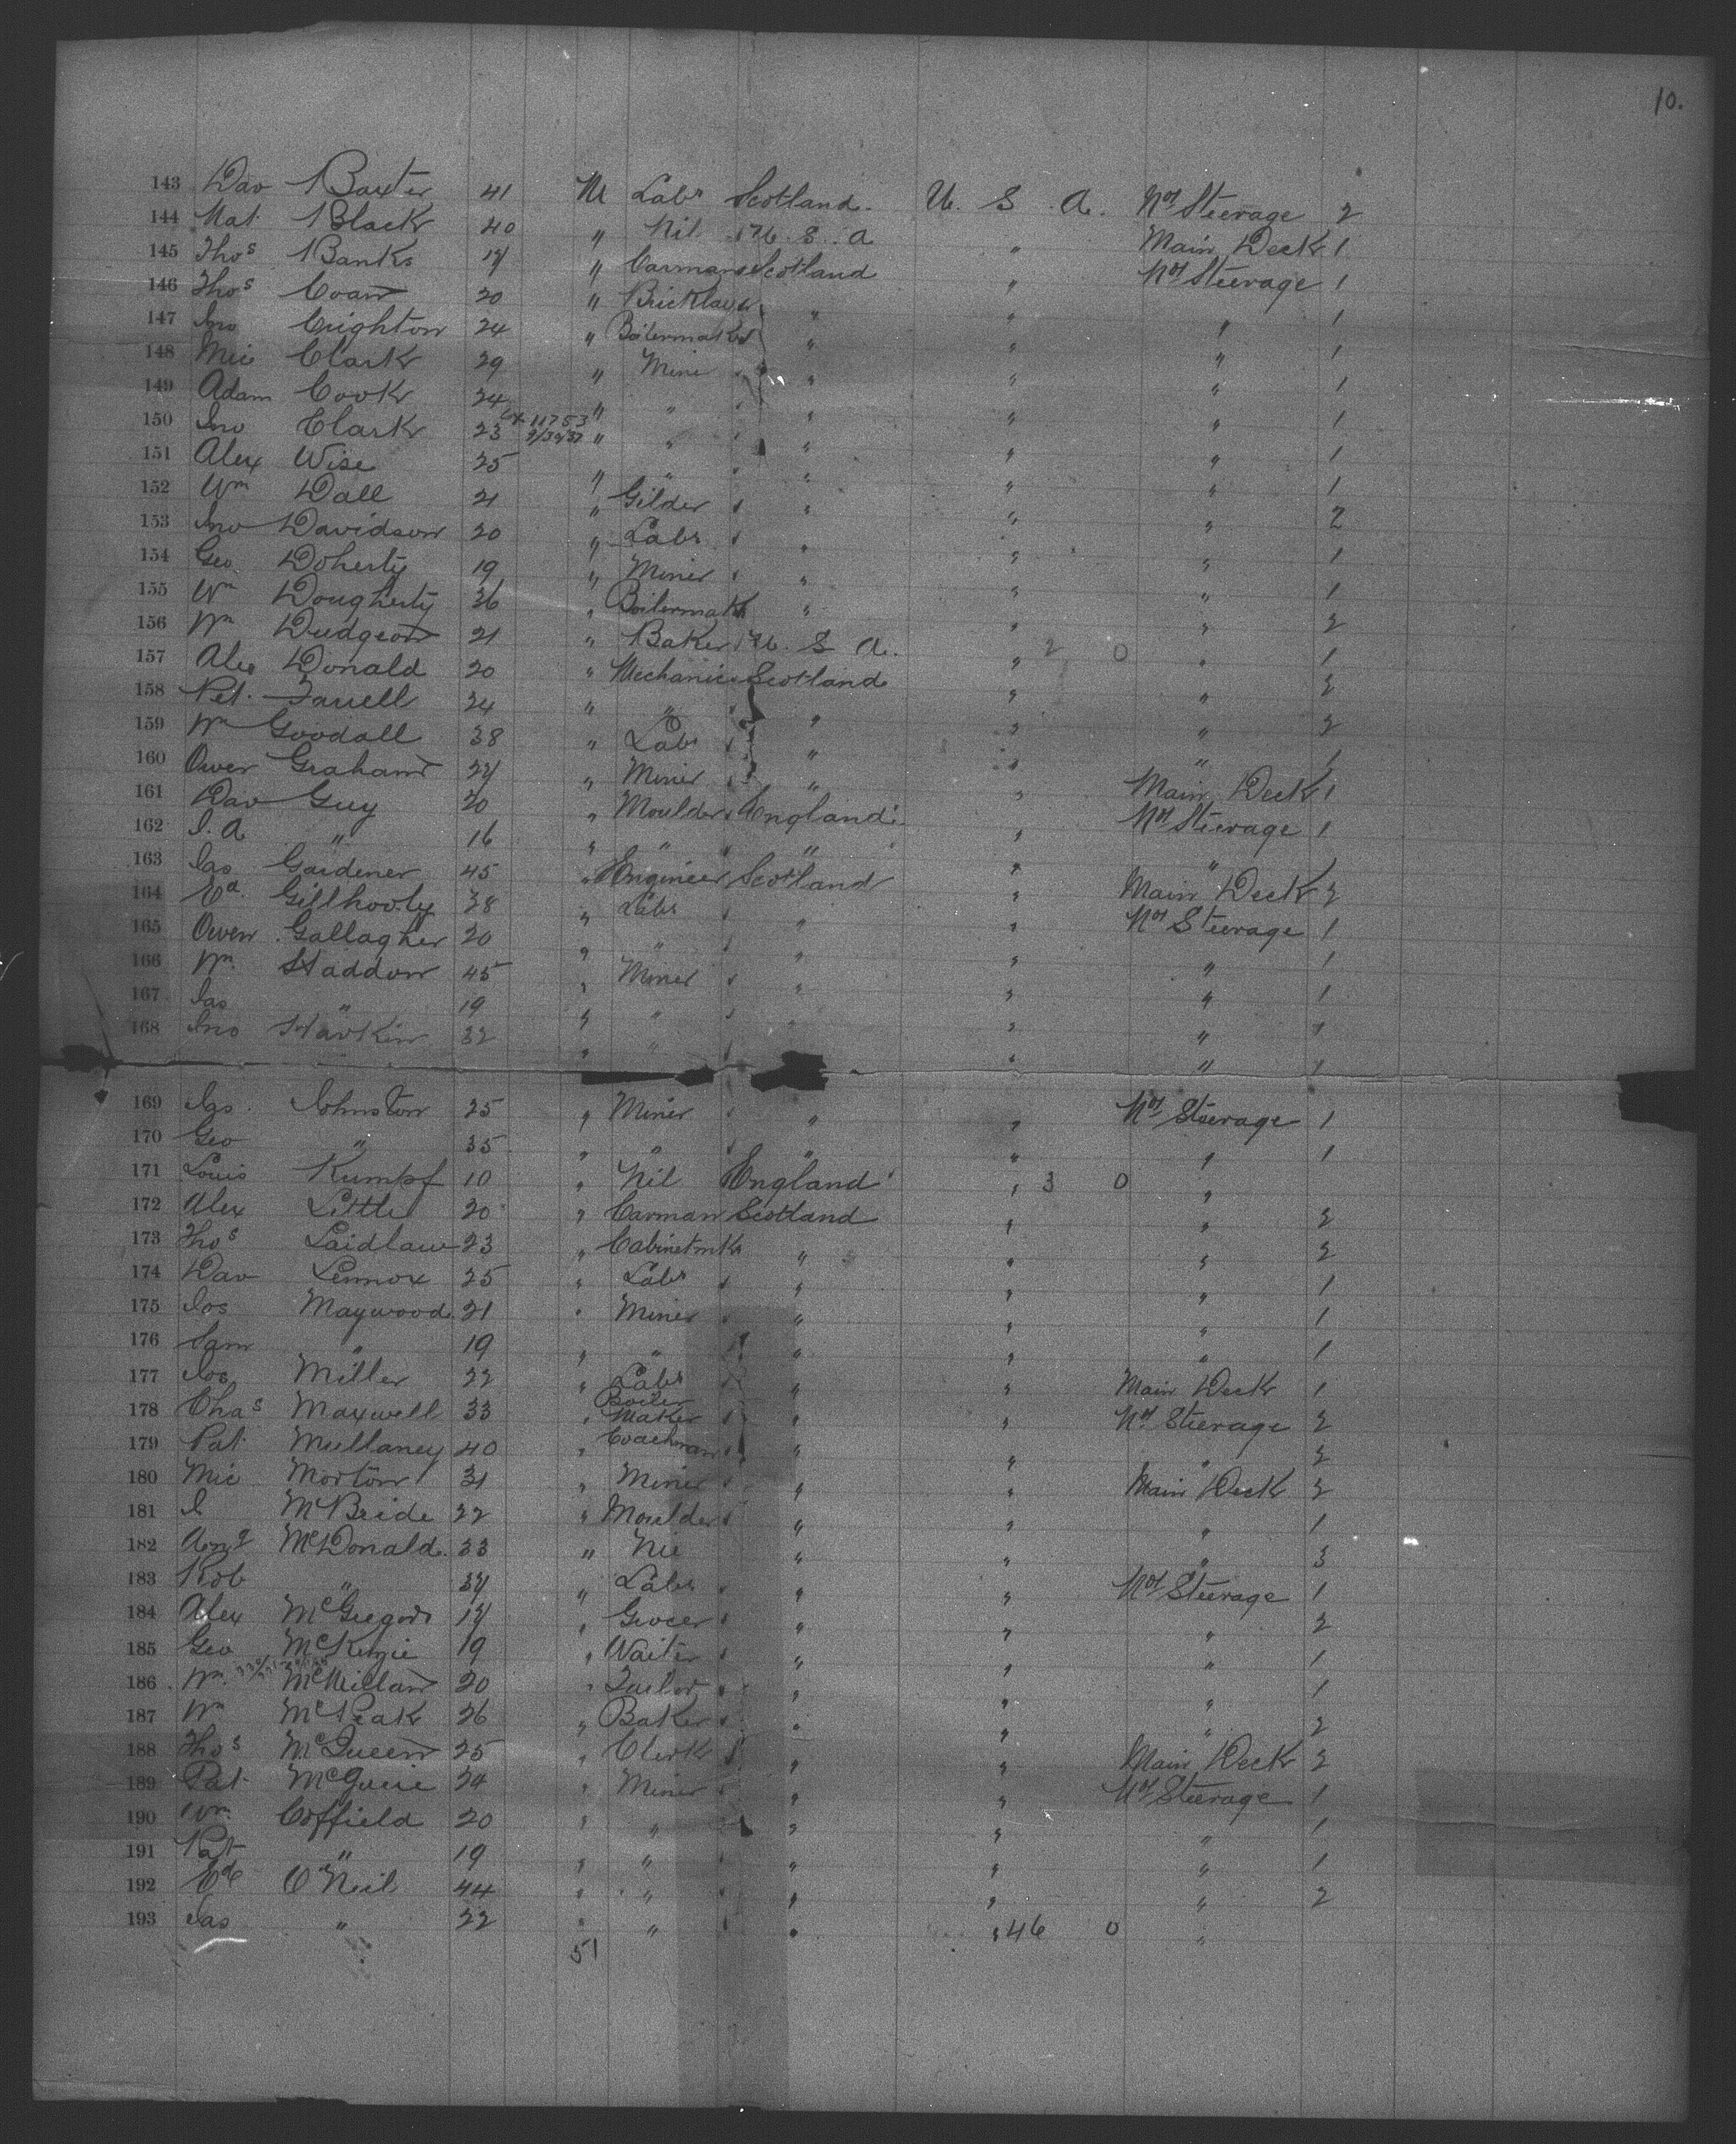 10.
143 Dav Baxter 41 M Labr Scotland. U. S. A. No1 Steerage 2
144 Mat Black 40 " Nil U. S. A " Main Deck 1
145 Thos Banks 17 " Carman Scotland " No1 Steerage 1
146 Thos Coan 20 " Bricklayer " " " 1
147 Jno Crighton 24 " Boilermaker " " " 1
148 Mic Clark 29 " Miner " " " 1
149 Adam Cook 24 " " " " " 1
150 Jno Clark 23 " " " " " 1
151 Alex Wise 25 " " " " " 1
152 Wm Dall 21 " Gilder " " " 2
153 Jno Davidson 20 " Labr " " " 1
154 Geo Doherty 19 " Miner " " " 1
155 Wm Dougherty 36 " Boilermakr " " " 2
156 Wm Dudgeon 21 " Baker U. S. A. " 2 0 " 1
157 Alex Donald 20 " Mechanic Scotland " " 2
158 Pet. Farrell 24 " " " " " 2
159 Wm Goodall 38 " Labr " " "
160 Owen Graham 27 " Miner " " Main Deck 1
161 Dav Guy 20 " Moulder England " No1 Steerage 1
162 J. A " 16 " " " " "
163 Jas Gardener 45 " Engineer Scotland " Main Deck 2
164 Ed. Gillhooly 38 " Labr " " No1 Steerage 1
165 Owen Gallagher 20 " " " " " 1
166 Wm Haddow 45 " Miner " " " 1
167 Jas " 19 " " " " " 1
168 Jno Harkin 32 " " " " 1
169 Jas. Johnston 25 " Miner " " No1 Steerage 1
170 Geo " 35 " " " " " 1
171 Louis Kumpf 10 " Nil England " 3 0 "
172 Alex Little 20 " Carman Scotland " " 2
173 Thos Laidlaw 23 " Cabinetmkr " " " 2
174 Dav Lennox 25 " Labr " " " 1
175 Jos Maywood 21 " Miner " " " 1
176 Sam " 19 " " " " " 1
177 Jos Miller 22 " Labr " " Main Deck 1
178 Chas Maxwell 33 " Boiler Maker " " No1 Steerage 2
179 Pat Mullaney 40 " Coachman " " " 2
180 Mic Morton 31 " Miner " " Main Deck 2
181 J McBride 22 " Moulder " " " 1
182 Ang McDonald 33 " Nil " " " 3
183 Rob " 37 " Labr " " No1 Steerage 1
184 Alex McGregor 17 " Grocer " " " 2
185 Geo McKenzie 19 " Waiter " " " 1
186 Wm. McMillan 20 " Tailor " " " 1
187 Wm McPeak 26 " Baker " " " 2
188 Thos McQueen 25 " Clerk " " Main Deck 2
189 Pat McGuire 24 " Miner " " No1 Steerage 1
190 Wm. Coffield 20 " " " " " 1
191 Pat " 19 " " " " " 1
192 Ed O'Neil 44 " " " " " 2
193 Jas " 22 " " " " 46 0 "
51